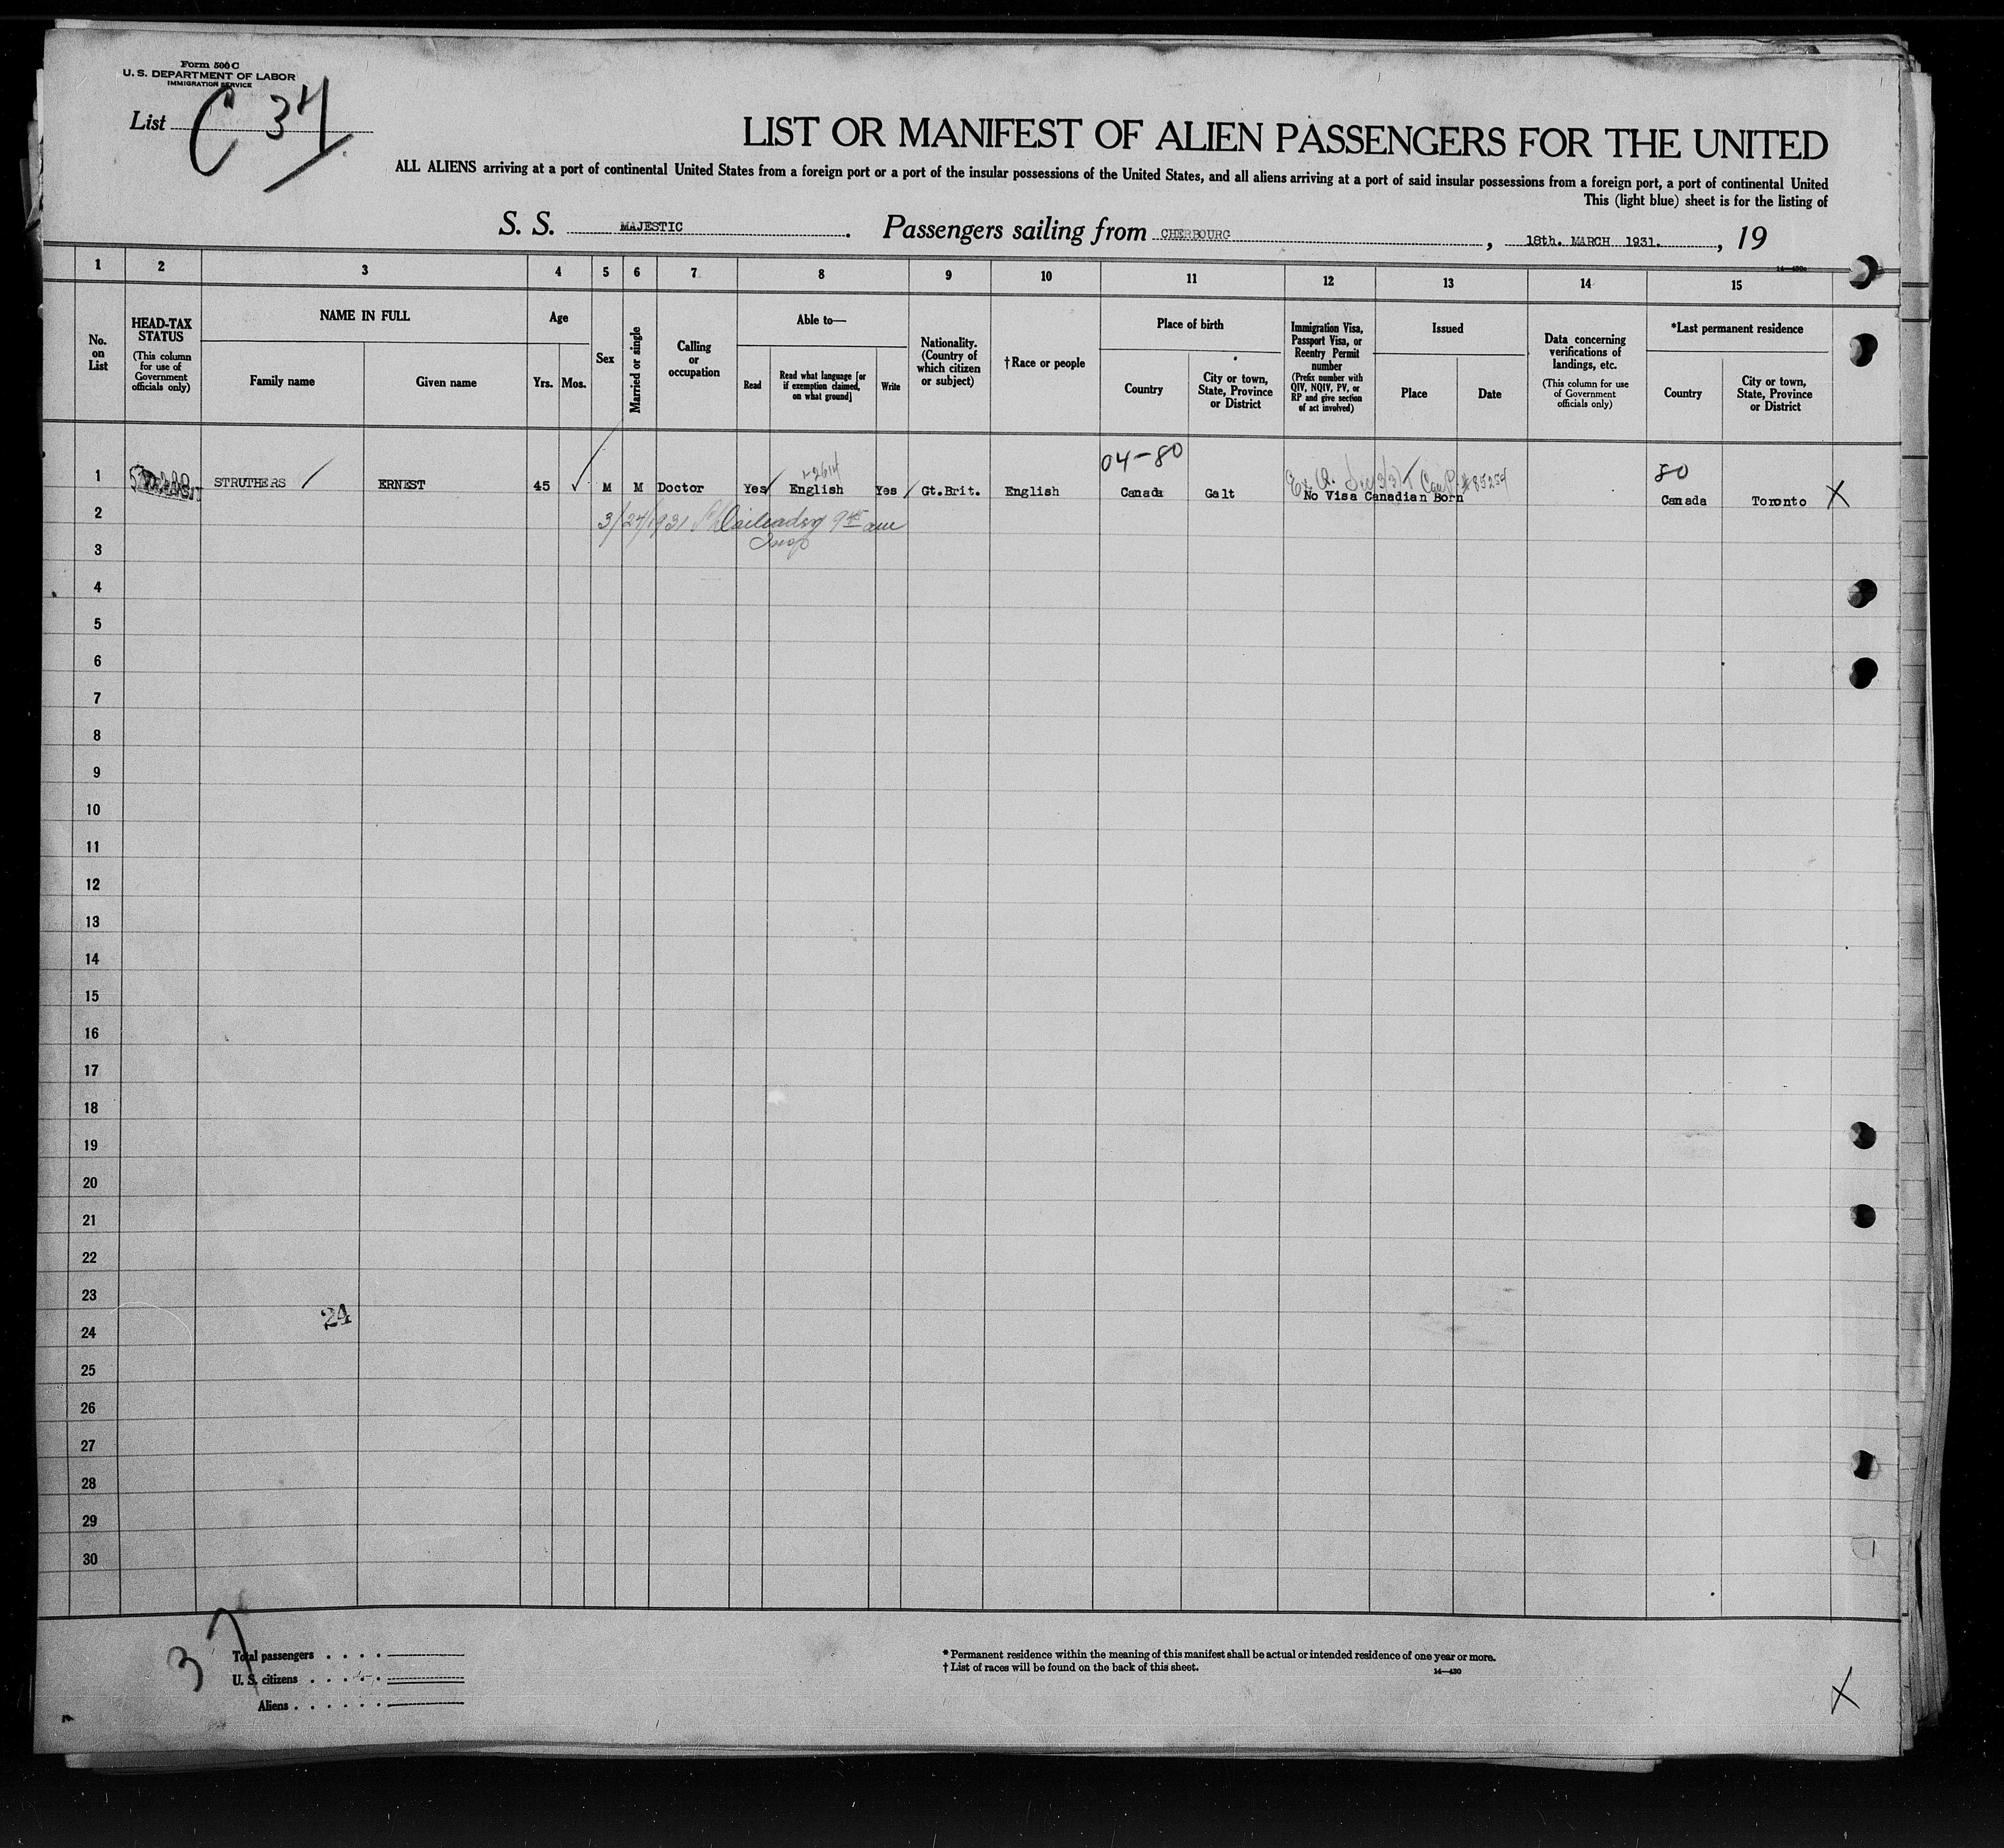 Form 500 C
U. S. DEPARTMENT OF LABOR
IMMIGRATION SERVICE
List C 34
LIST OR MANIFEST OF ALIEN PASSENGERS FOR THE UNITED
ALL ALIENS arriving at a port of continental United States from a foreign port or a port of the insular possessions of the United States, and all aliens arriving at a port of said insular possessions from a foreign port, a port of continental United
This (light blue) sheet is for the listing of
S. S. MAJESTIC. Passengers sailing from CHERBOURG, 18th. MARCH 1931., 19
14—430
1 2 3 4 5 6 7 8 9 10 11 12 13 14 15
No. on List
HEAD-TAX STATUS
(This column for use of Government officials only)
NAME IN FULL
Family name
Given name
Age
Yrs.
Mos.
Sex
Married or single
Calling or occupation
Able to—
Read
Read what language [or if exemption claimed, on what ground]
Write
Nationality. (Country of which citizen or subject)
†Race or people
Place of birth
Country
City or town, State, Province or District
Immigration Visa, Passport Visa, or Reentry Permit number
(Prefix number with QIV, NQIV, PV, or RP and give section of act involved)
Issued
Place
Date
Data concerning verifications of landings, etc.
(This column for use of Government officials only)
*Last permanent residence
Country
City or town, State, Province or District
04-80
80
1 STRUTHERS ERNEST 45 M M Doctor Yes English Yes Gt.Brit. English Canada Galt No Visa Canadian Born Canada Toronto X
2 3/24/1931
3
4
5
6
7
8
9
10
11
12
13
14
15
16
17
18
19
20
21
22
23
24
24
25
26
27
28
29
30
37
Total passengers . . . .
U. S. citizens . . . . .
Aliens . . . . . .
* Permanent residence within the meaning of this manifest shall be actual or intended residence of one year or more.
† List of races will be found on the back of this sheet.
14—430
X